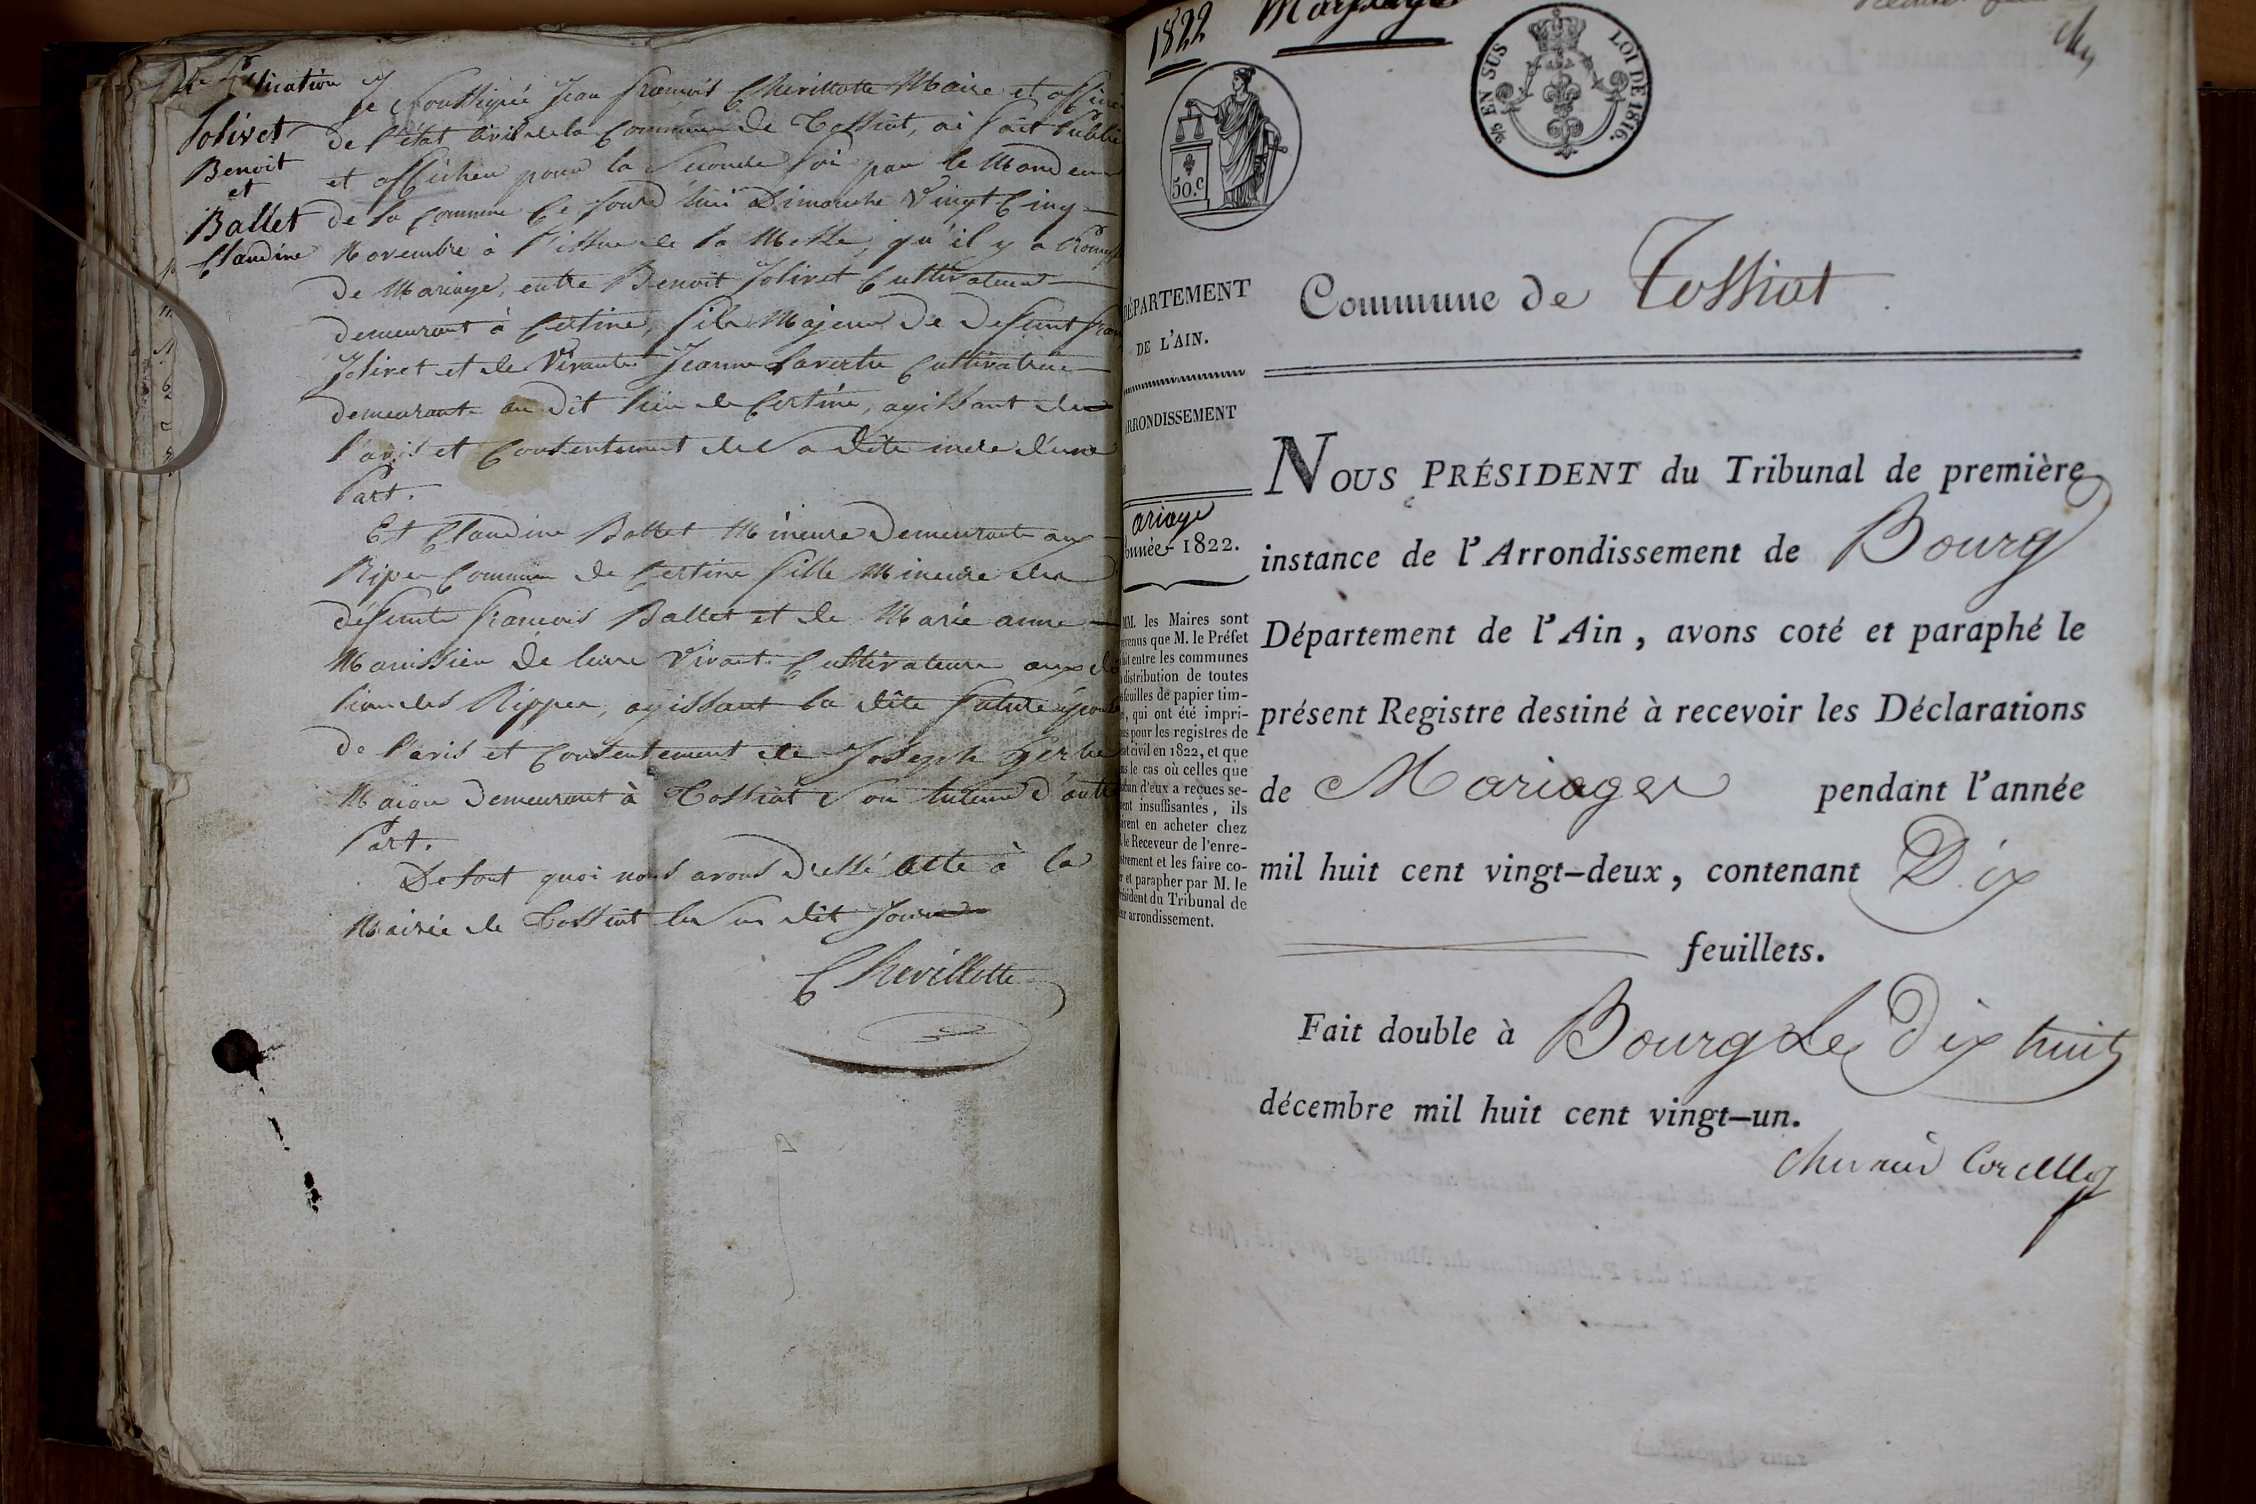 Publication
Jolivet
Benoit
et
Ballet
Claudine
Je Soussigné Jean François Chevillotte Maire et officier
de l'état civil de la Commune de Tossiat, ai fait Publie
et afficher pour la Seconde fois par le Mandeur
de la Commune Ce Jourd'hui Dimanche Vingt Cinq
Novembre à l'issue de la Messe, qu'il y a Promesse
de Mariage, entre Benoit Jolivet Cultivateur
demeurant à Certine, fils Majeur de défunt
Jolivet et de Vivante Jeanne Cultivatrice
demeurante au dit lieu de Certine, agissant de
l'avis et Consentement de Sa dite mere d'une
Part.
Et Claudine Ballet Mineure Demeurante aux
Riper Commune de Certine fille Mineure de
défunte François Ballet et de Marie anne
de leur Vivant Cultivateurs aux
lieu des Ripper, agissant la dite future épouse
de l'avis et Consentement de Joseph
Demeurant à Tossiat Son tuteur d'autre
Part.
De tout quoi nous avons Dressé acte à la
Mairie de Tossiat les Sus dit Jour
Chevillotte
1822
EN SUS
LOI DE 1816.
50.c
DÉPARTEMENT
DE L'AIN.
ARRONDISSEMENT
ariage
Année 1822.
MM. les Maires sont
prévenus que M. le Préfet
fait entre les communes
la distribution de toutes
feuilles de papier tim-
, qui ont été impri-
pour les registres de
civil en 1822, et que
le cas où celles que
d'eux a reçues se-
insuffisantes, ils
en acheter chez
le Receveur de l'enre-
gistrement et les faire co-
et parapher par M. le
Président du Tribunal de
arrondissement.
Commune de Tossiat
Nous PRÉSIDENT du Tribunal de première
instance de l'Arrondissement de Bourg
Département de l'Ain, avons coté et paraphé le
présent Registre destiné à recevoir les Déclarations
de Mariages pendant l'année
mil huit cent vingt-deux, contenant Dix
feuillets.
Fait double à Bourg Le Dix huit
décembre mil huit cent vingt-un.